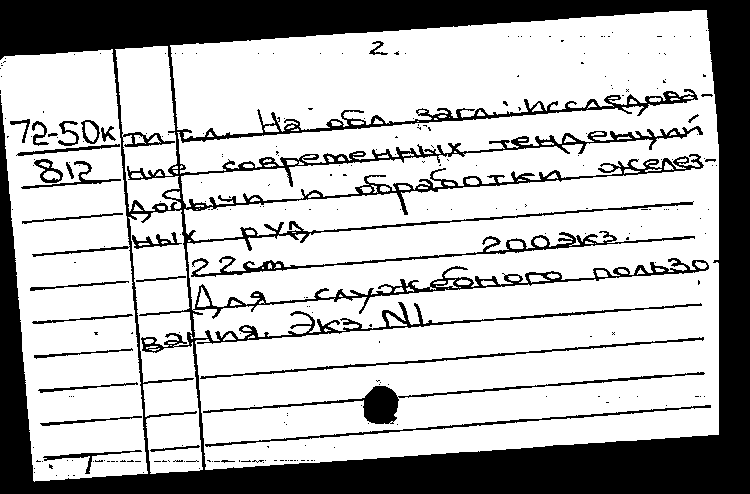 2.
72-50к тит.л. На обл. загл.: Исследова-
812 ние современных тенденций
добычи и обработки желез-
ных руд.
22 cm. 200 экз.
Для служебного пользо-
вания. Экз. N1.